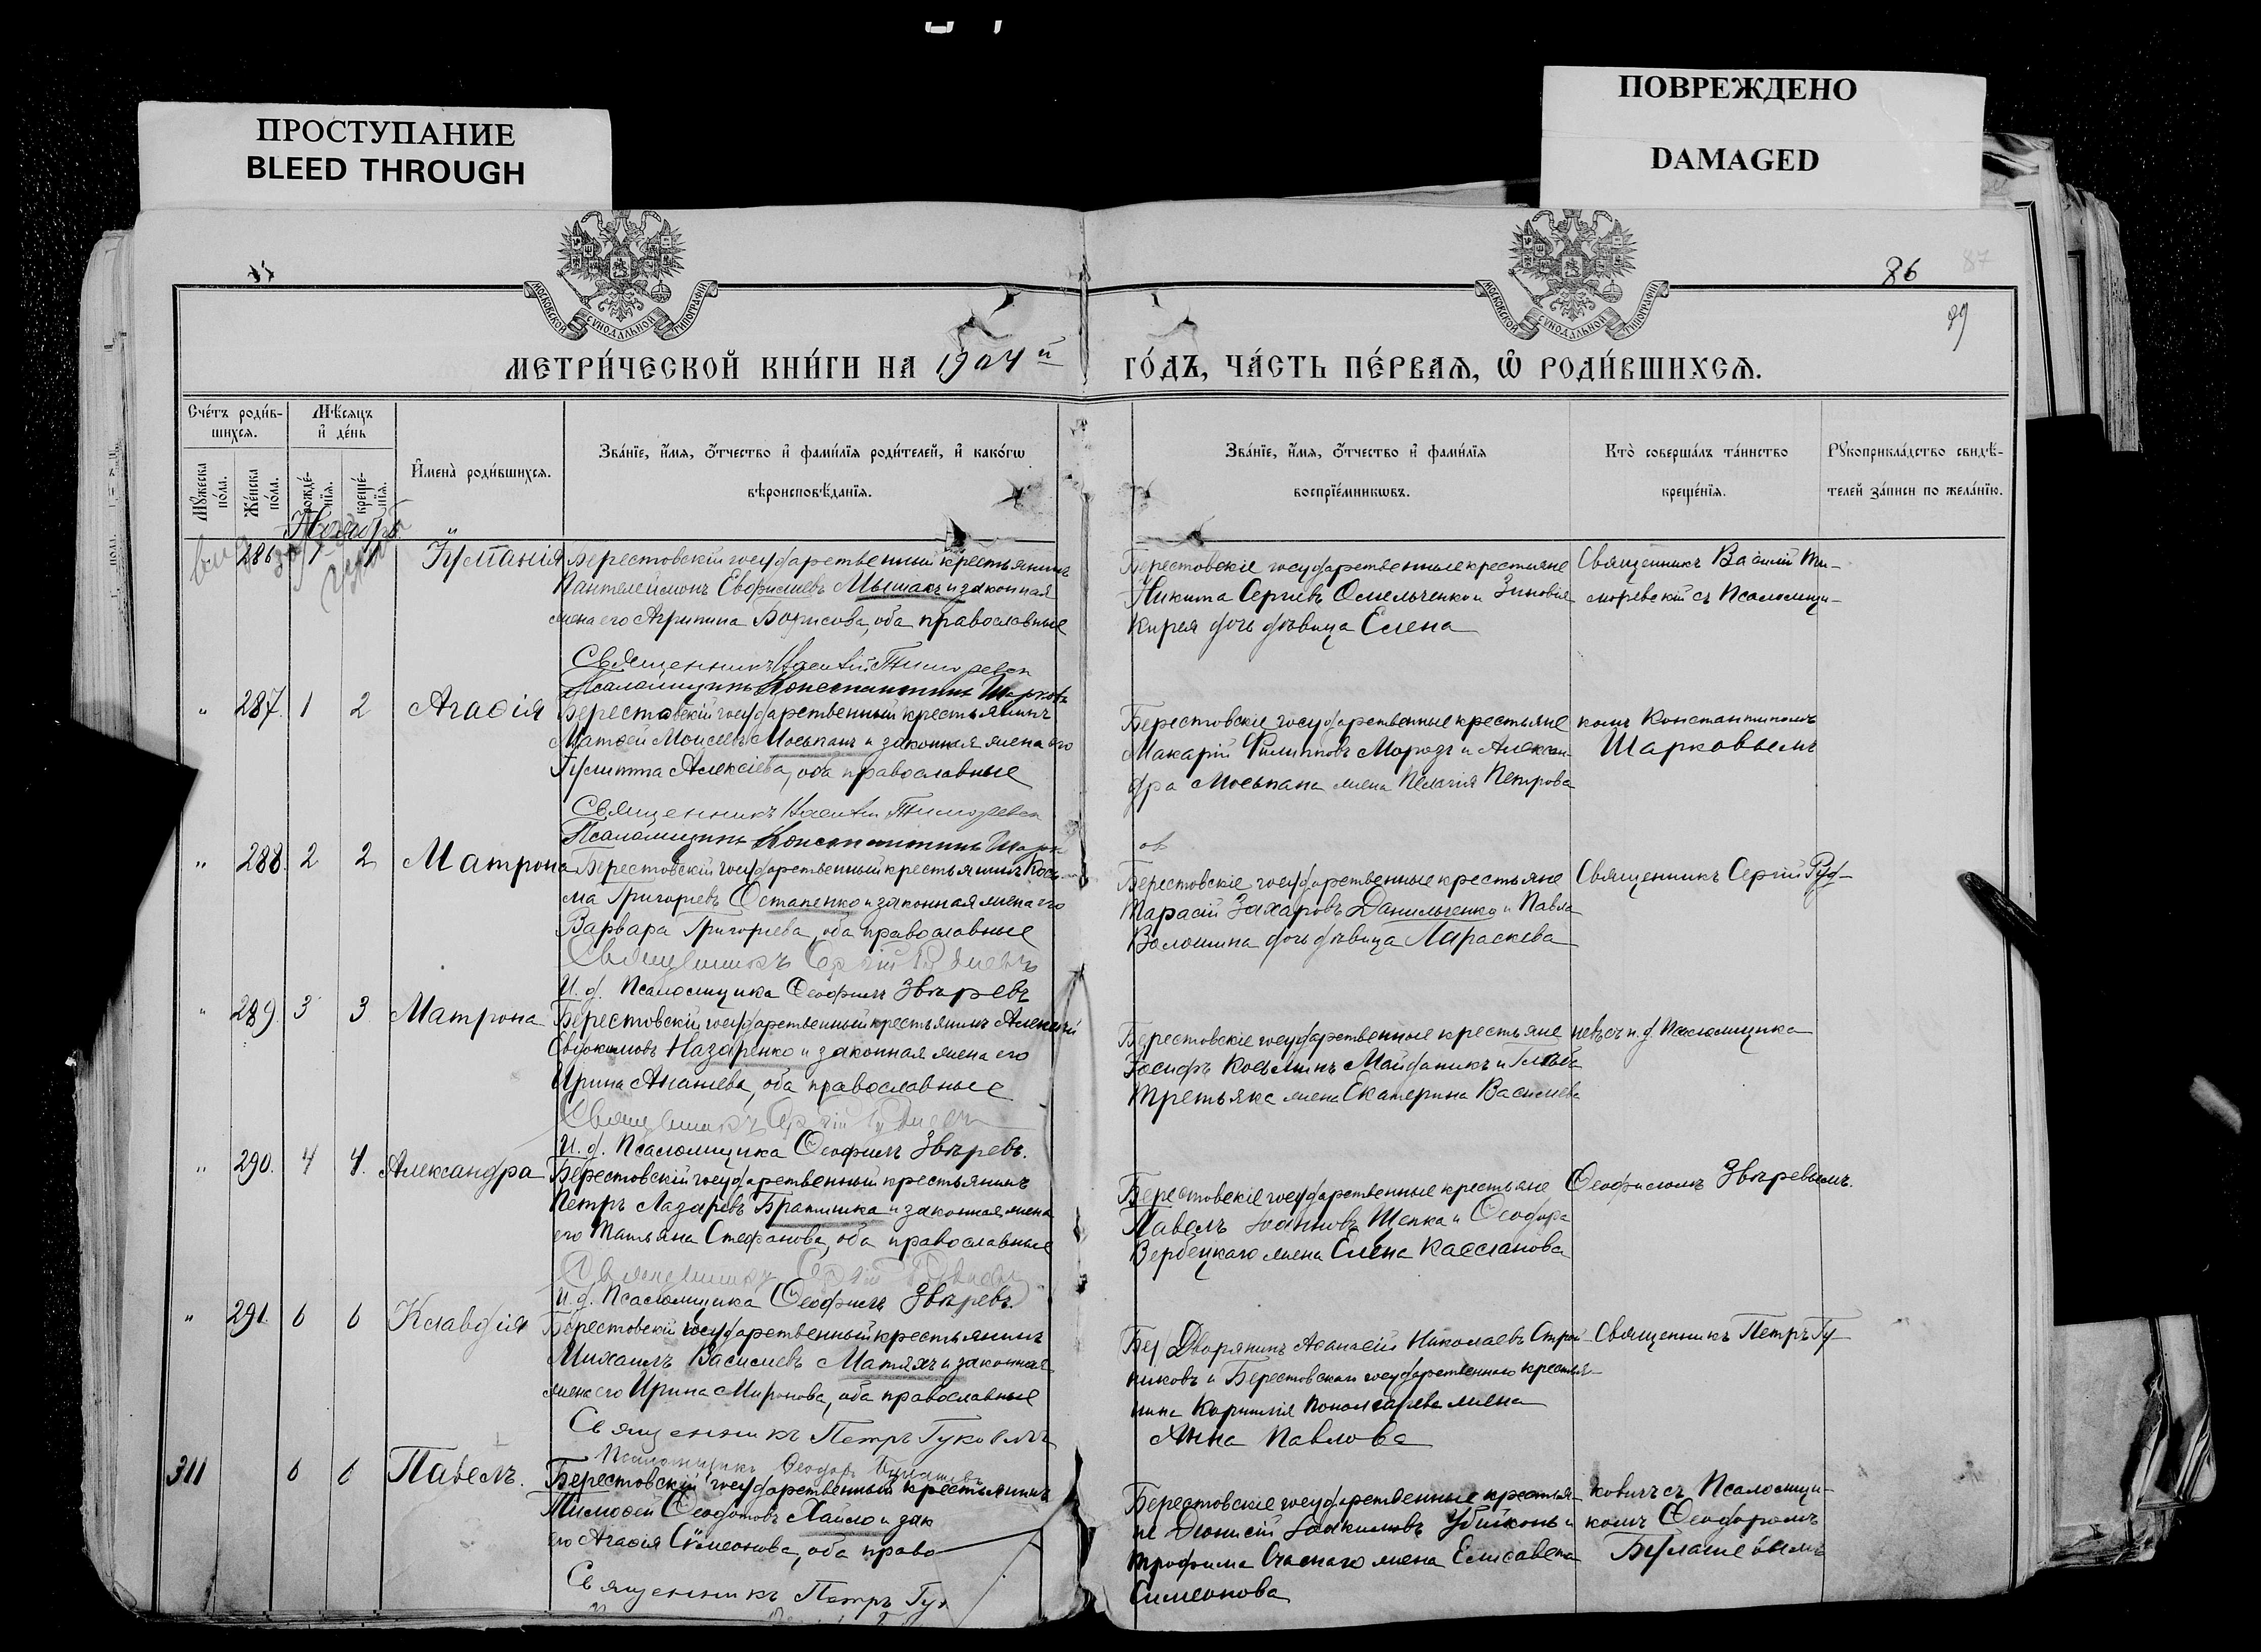 ПРОСТУПАНИЕ
BLEED THROUGH
ПОВРЕЖДЕНО
DAMAGED
МОСКОВСКОЙ СУНОДАЛЬНОЙ ТИПОГРАФІИ
МОСКОВСКОЙ СУНОДАЛЬНОЙ ТИПОГРАФІИ
86
87
МЕТРИ́ЧЕСКОЙ КНИ́ГИ НА 1904 й
ГО́ДЪ, ЧА́СТЬ ПЕ́РВАѦ, Ѿ РОДИ́ВШИХСѦ.
Сче́тъ роди́в-
шихсѧ.
Мꙋжеска по́ла.
Же́нска по́ла.
Мѣ́сѧцъ
и де́нь
рожде́-
нїѧ.
креще́-
нїѧ.
Имена̀ роди́вшихсѧ.
Зва́нїе, и́мѧ, о́тчество и фами́лїѧ роди́телей, и како́гѡ
вѣроисповѣ́данїѧ.
Зва́нїе, и́мѧ, о́тчество и фами́лїѧ
воспрїе́мникѡвъ.
Кто̀ соверша́лъ та́инство
креще́нїѧ.
Рꙋкоприкла́дство свидѣ́-
телей за́писи по жела́нїю.
Ноябрь
286 1 1 Іустинія Берестовскій государственный крестьянинъ
Пантелеймонъ Евфиміевъ Мышакъ и законная
жена его Агрипина Борисова, оба православные
Священникъ Василій Тиморевск
Псаломщикъ Константинъ Шарковъ
Берестовскіе государственные крестьяне
Никита Сергіевъ Омельченко и Зиновія
Кирея дочь дѣвица Елена
Священникъ Василій Ти-
моревскій съ Псаломщи-
" 287. 1 2 Агаѳія Берестовскій государственный крестьянинъ
Матѳей Моисеевъ Моськанъ и законная жена его
Іулитта Алексіева, оба православные
Священникъ Василій Тиморевск
Псаломщикъ Константинъ Шарк
ов
Берестовскіе государственные крестьяне
Макарій Филипповъ Морозъ и Алексан-
дра Моськана жена Пелагія Петрова
комъ Константиномъ
Шарковымъ
" 288. 2 2 Матрона Берестовскій государственный крестьянинъ Кось-
ма Григорьевъ Остапенко и законная жена его
Варвара Григорьева, оба православные
Священникъ Сергій
И. д. Псаломщика Ѳеофилъ Звѣревъ
Берестовскіе государственные крестьяне
Тарасій Захаровъ Данильченко и Павла
Волошина дочь дѣвица Параскева
Священникъ Сергій Руд-
" 289. 3 3 Матрона Берестовскій государственный крестьянинъ Алексій
Евдокимовъ Назаренко и законная жена его
Ирина Ананіева, оба православные
Священникъ Сергій
И. д. Псаломщика Ѳеофилъ Звѣревъ.
Берестовскіе государственные крестьяне
Іосифъ Косьминъ Майданикъ и Глѣба
Третьяка жена Екатерина Васильева
невъ съ и. д. Псаломщика
" 290. 4 4. Александра Берестовскій государственный крестьянинъ
Петръ Лазаревъ Братишка и законная жена
его Татьяна Стефанова, оба православные
Священникъ Сергій
И. д. Псаломщика Ѳеофилъ Звѣревъ.
Берестовскіе государственные крестьяне
Павелъ Іоанновъ Щепка и Ѳеодора
Вербецкаго жена Елена Кассіанова
Ѳеофиломъ Звѣревымъ.
" 291. 6 6 Клавдія Берестовскій государственный крестьянинъ
Михаилъ Васильевъ Матяхъ и законная
жена его Ирина Миронова, оба православные
Священникъ Петръ Гуковичъ
Псаломщикъ Ѳеодоръ
Бер/ Дворянинъ Аѳанасій Николаевъ Строй-
никовъ и Берестовскаго государственнаго крестья-
нина Корнилія Пономарева жена
Анна Павлова
Священникъ Петръ Гу-
311 6 6 Павелъ. Берестовскій государственный крестьянинъ
Тимоѳей Ѳеодотовъ Хайло и зак
его Агаѳія Симеонова, оба право
Священникъ Петръ Гук
Берестовскіе государственные крестья-
не Діонисій Іоакимовъ Убійконь и
Трофима Счаснаго жена Елисавета
Симеонова
ковичъ съ Псаломщи-
комъ Ѳеодоромъ
Булашевымъ